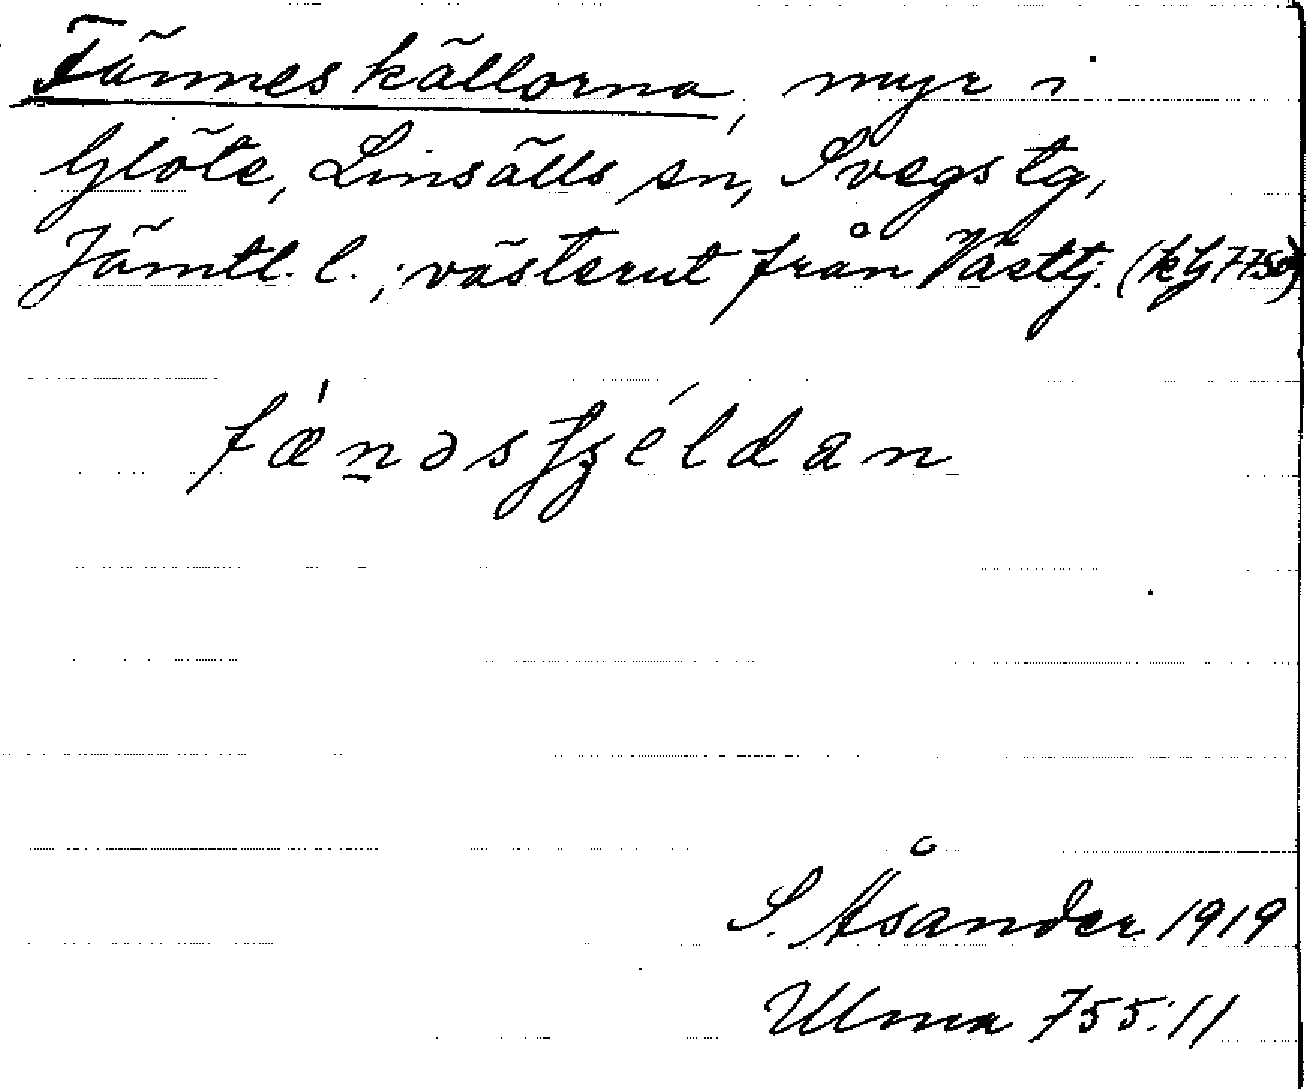 Tännes källorna, myr i
Glöte, Linsälls sn, Svegs tg,
Jämtl. l.; västerut från Västtj. (kG 7750)
S. Åsander 1919
Ulma 755:11